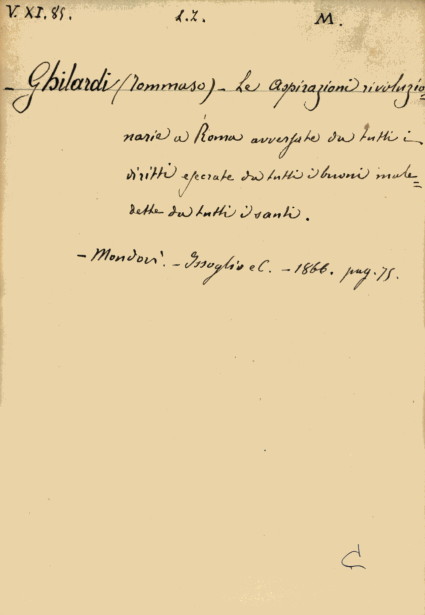 V. XI. 85. L.Z. M.
- Ghilardi (Tommaso) - Le aspirazioni rivoluzio=
narie a Roma avversate da tutti i
diritti esecrate da tutti i buoni male=
dette da tutti i santi.
- Mondovì. - Issoglio e C. - 1866. pag. 75.
C